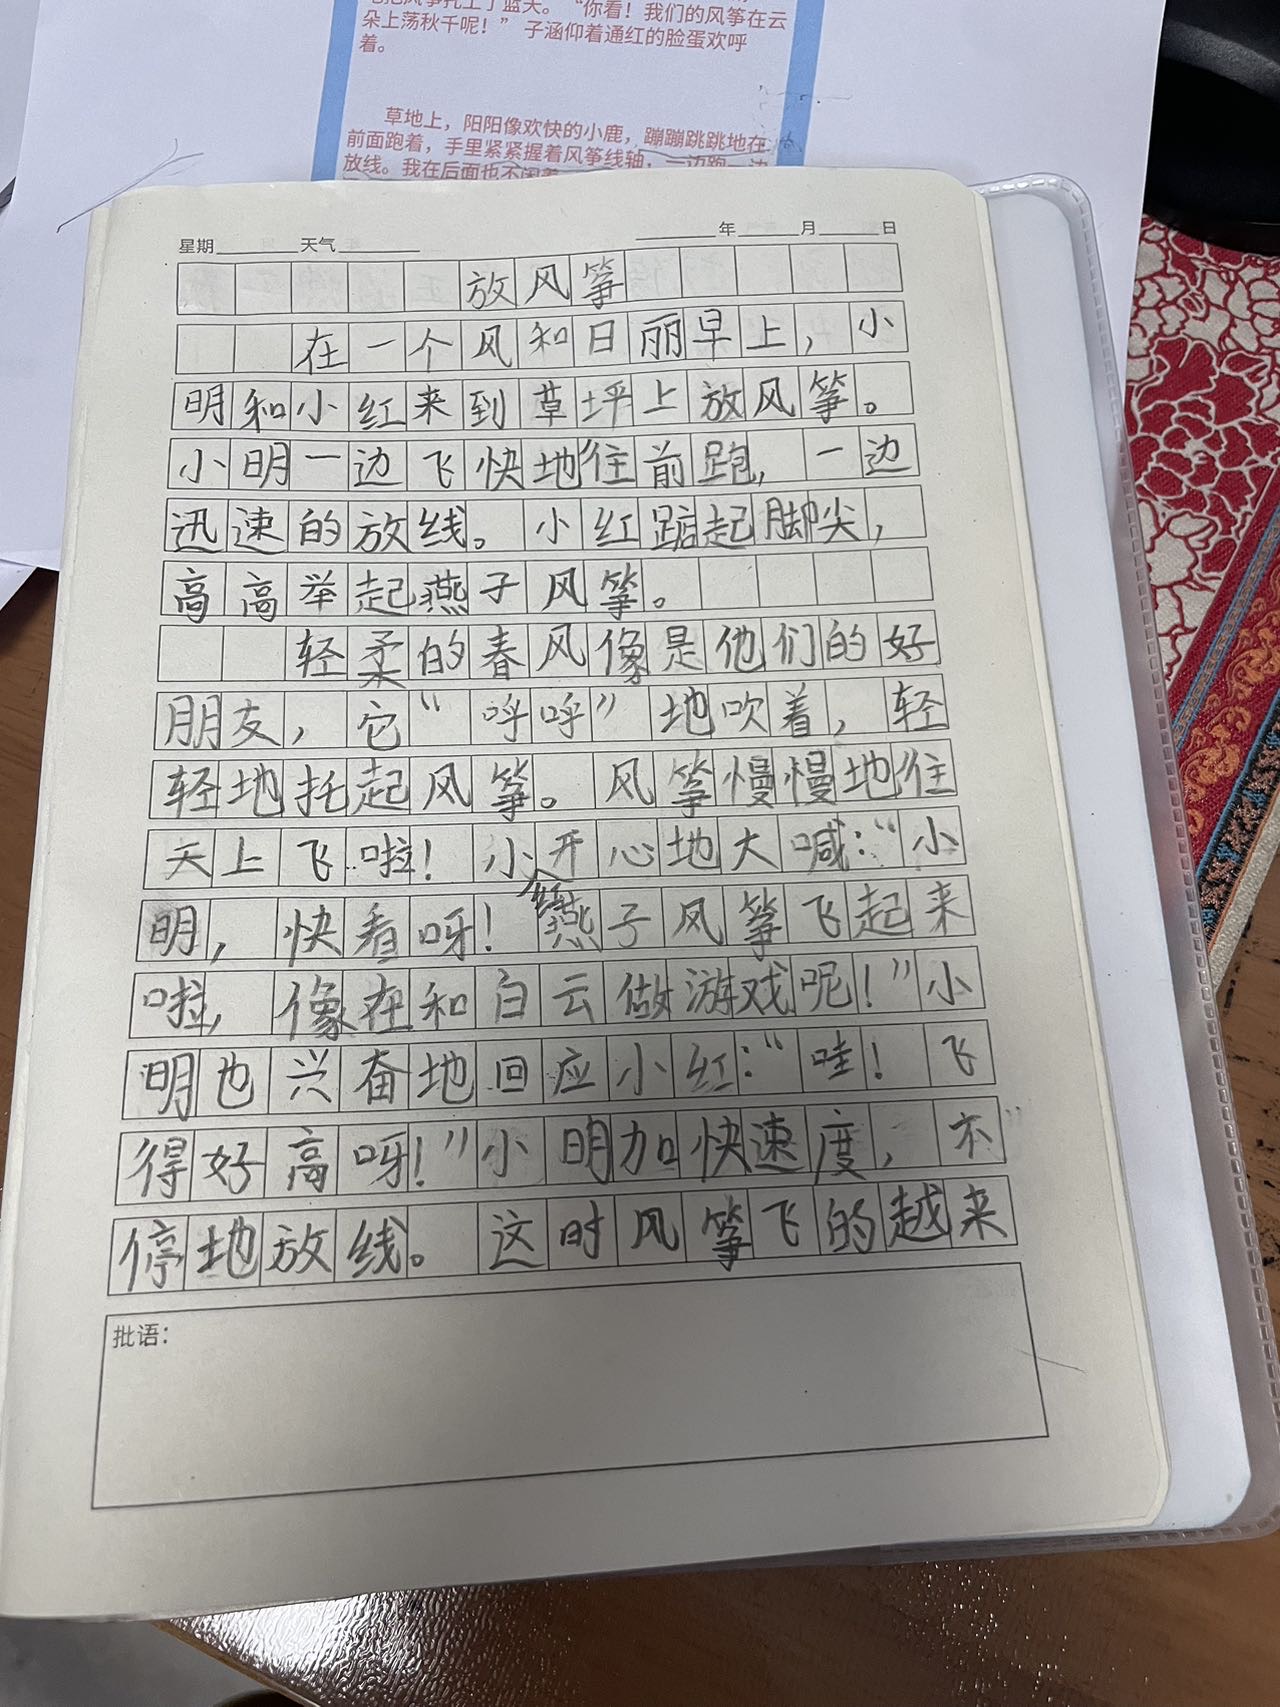 “你看！我们的风筝在云
朵上荡秋千呢！”子涵仰着通红的脸蛋欢呼
着。
草地上，阳阳像欢快的小鹿，蹦蹦跳跳地在
前面跑着，手里紧紧握着风筝线轴，一边跑一边
放线。我在后面也不闲着
星期 天气 年 月 日
放风筝
在一个风和日丽早上，小
明和小红来到草坪上放风筝。
小明一边飞快地往前跑，一边
迅速的放线。小红踮起脚尖，
高高举起燕子风筝。
轻柔的春风像是他们的好
朋友，它“呼呼”地吹着，轻
轻地托起风筝。风筝慢慢地往
天上飞啦！小红开心地大喊：“小
明，快看呀！燕子风筝飞起来
啦，像在和白云做游戏呢！”小
明也兴奋地回应小红：“哇！飞
得好高呀！”小明加快速度，不
停地放线。这时风筝飞的越来
批语：